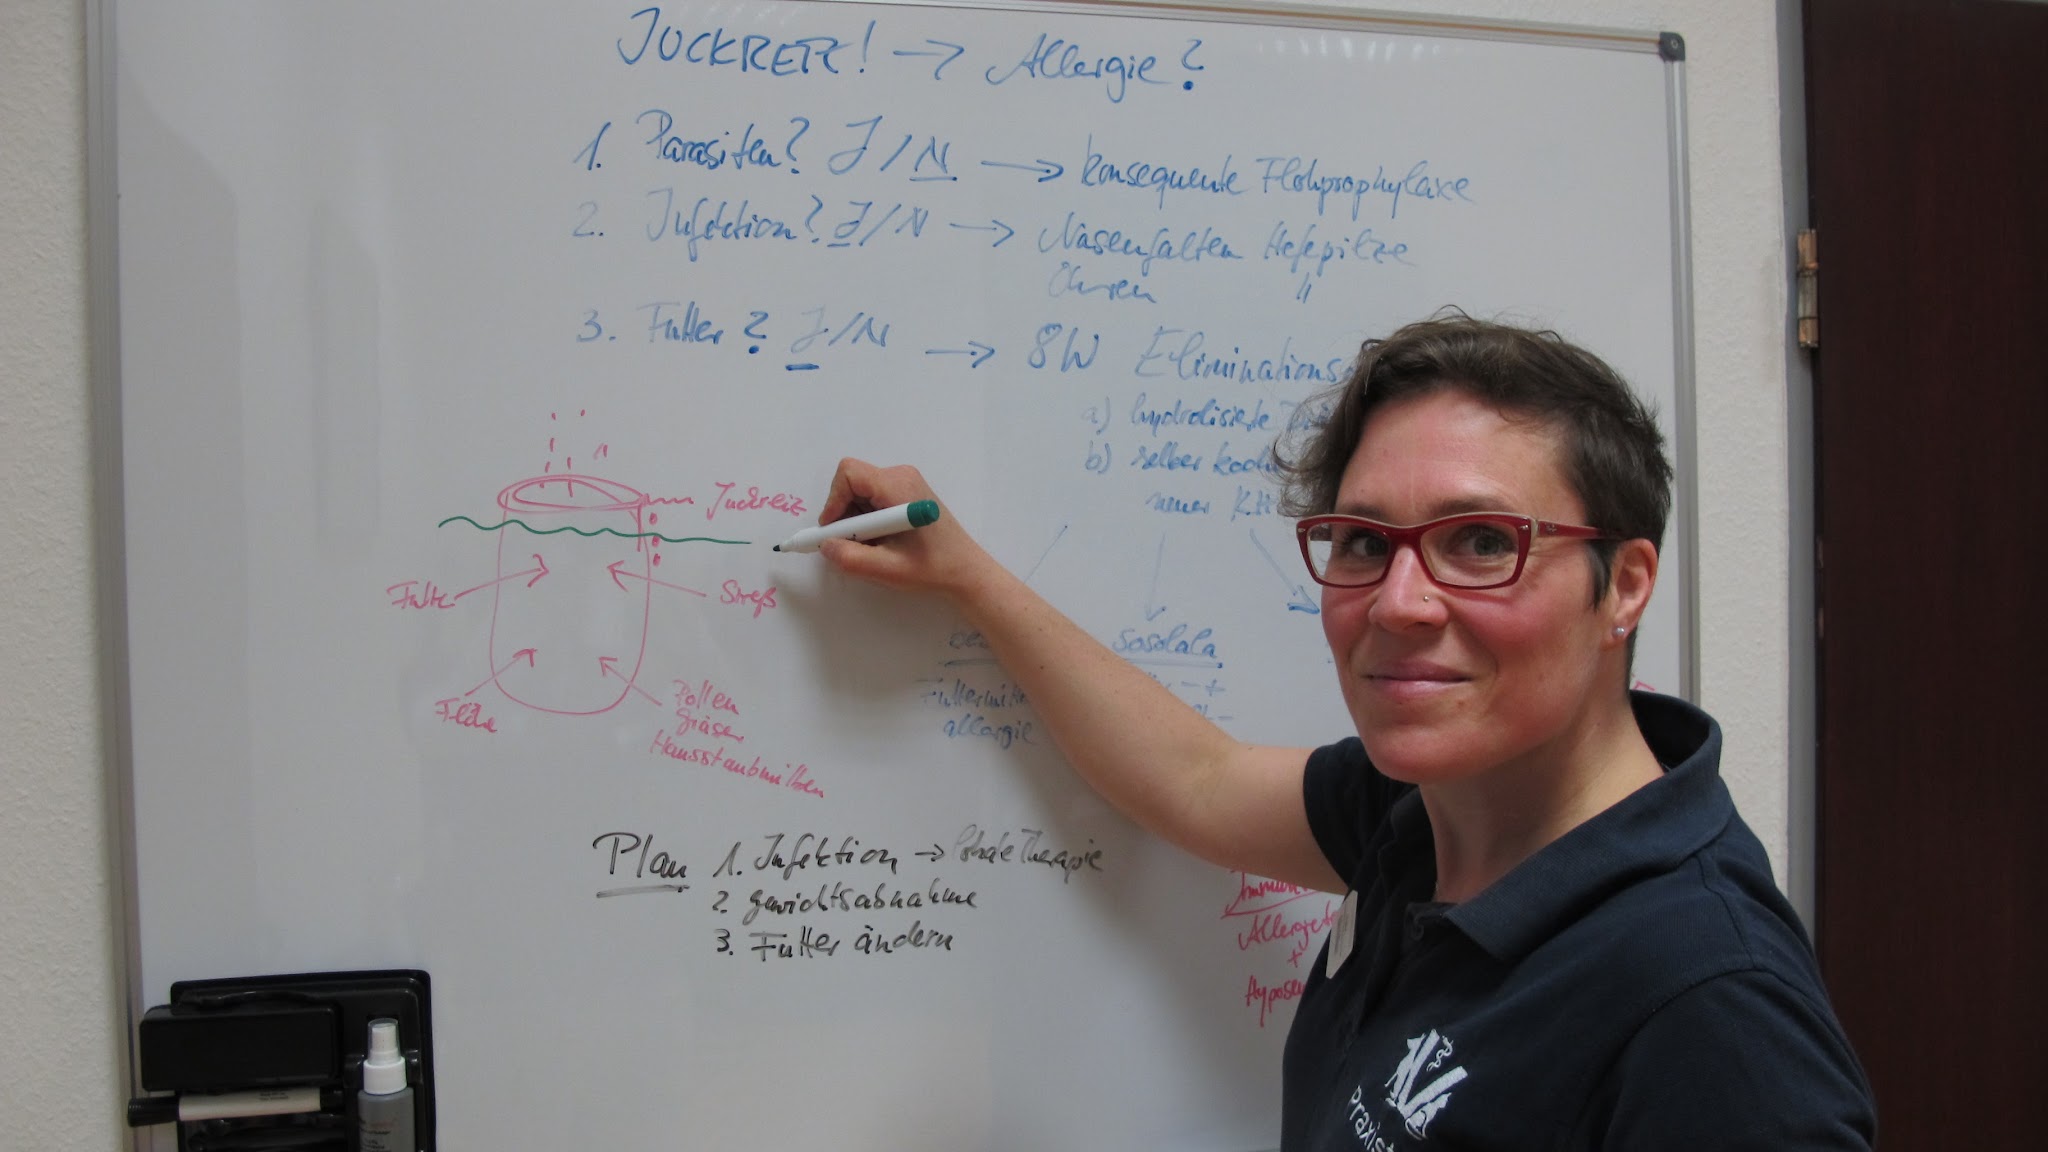 JUCKREIZ! → Allergie?
1. Parasiten? J/N → konsequente Flohprophylaxe
2. Infektion? J/N → Nasenfalten Hefepilze
Ohren "
3. Futter? J/N → 8W Eliminations
a) hydrolisierte
b) selber koch
neuer K.H
Juckreiz
Futter
Streß
Flöhe
Pollen
Gräser
Hausstaubmilben
sosolala
Futtermitte
allergie
Plan 1. Infektion → lokale Therapie
2. Gewichtsabnahme
3. Futter ändern
Immun
Allergiete
+
Hyposen
Praxis